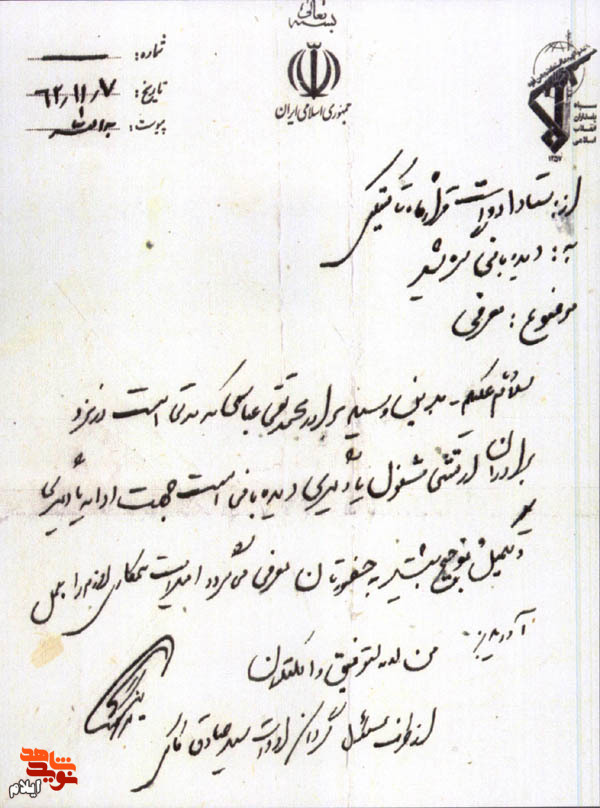 بسمه تعالی
جمهوری اسلامی ایران
سپاه
پاسداران
انقلاب
اسلامی
۱۳۵۷
شماره:
تاریخ: ۶۲/۱۱/۷
پیوست:
از: ستاد ادوات قرارگاه تاکتیکی
به: دیده بانی
موضوع: معرفی
سلام علیکم - بدین وسیله برادر محمد تقی عباسی که مدتی است در نزد
برادران ارتشی مشغول یادگیری دیده بانی است جهت ادامه یادگیری
و تکمیل توجیح بیشتر به حضورتان معرفی می گردد امید است همکاری لازم را بعمل
آورید
من الله التوفیق و
از طرف مسئول گردان ادوات سید صادق
شاهد
نوید
ایلام